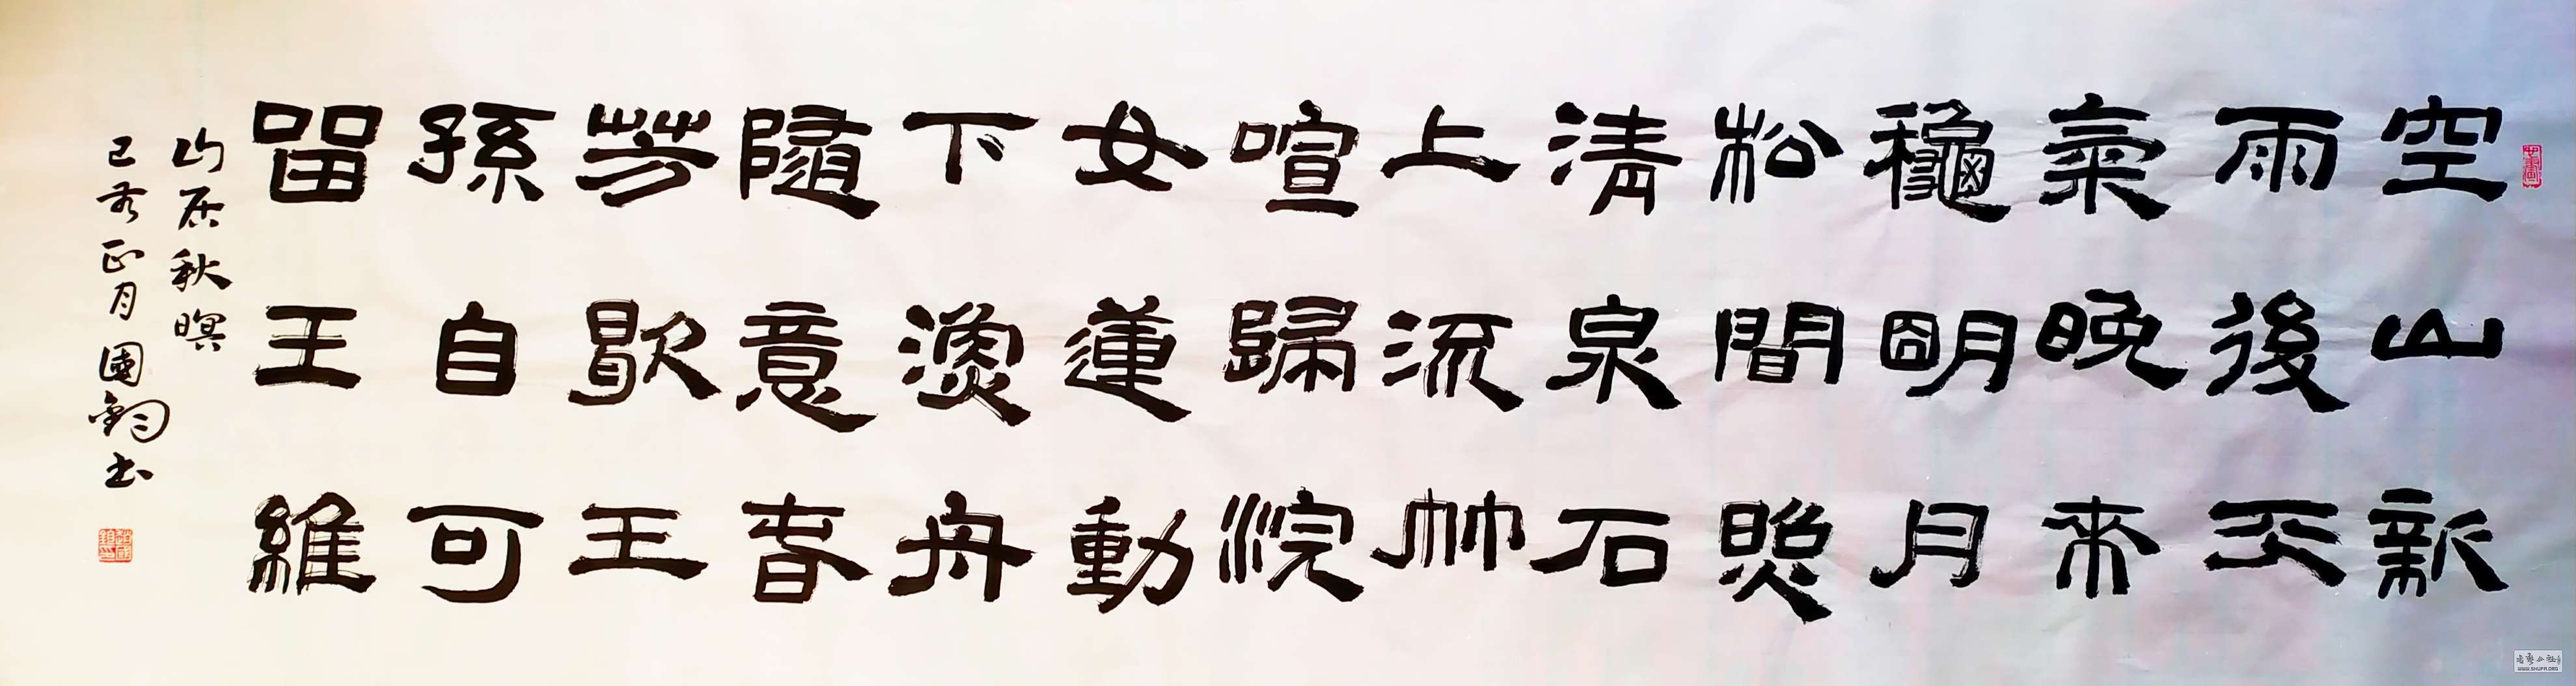 空山新
雨後天
氣晚来
龝明月
松間照
清泉石
上流竹
喧歸浣
女蓮動
下漁舟
隨意春
芳歇王
孫自可
留王維
山居秋暝
己亥正月國鈞书
WWW.SHUFA.ORG